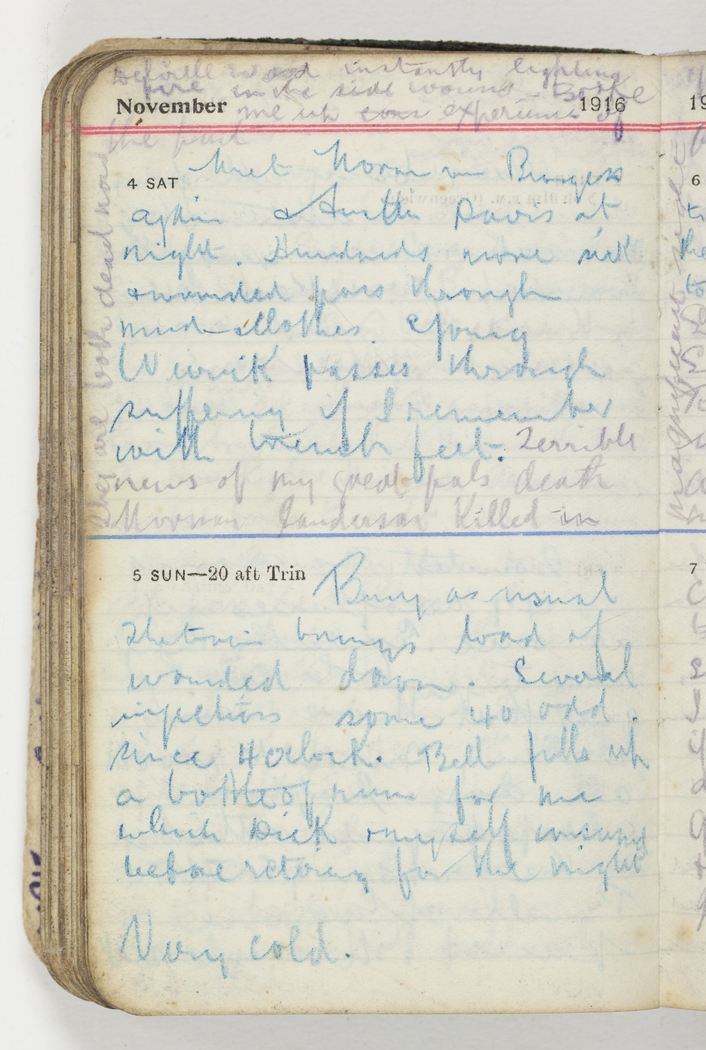 wood instantly lighting
fire in the side wound. Bottle
November 1916
me up experience of
the past
4 SAT Met Norman Burgess
again & Davis at
night. Hundreds more sick
& wounded pass through
mud clothes. Young
passes through
suffering if I remember
with trench feet. Terrible
news of my great pals death
Norman Sanderson killed in
they are both dead now
5 SUN—20 aft Trin Busy as usual
The train brings load of
wounded down. Several
injections some 40 odd
since 4 oclock. Bell fills up
a bottle of rum for me
which Dick & myself consume
before retiring for the night
Very cold.
6
7